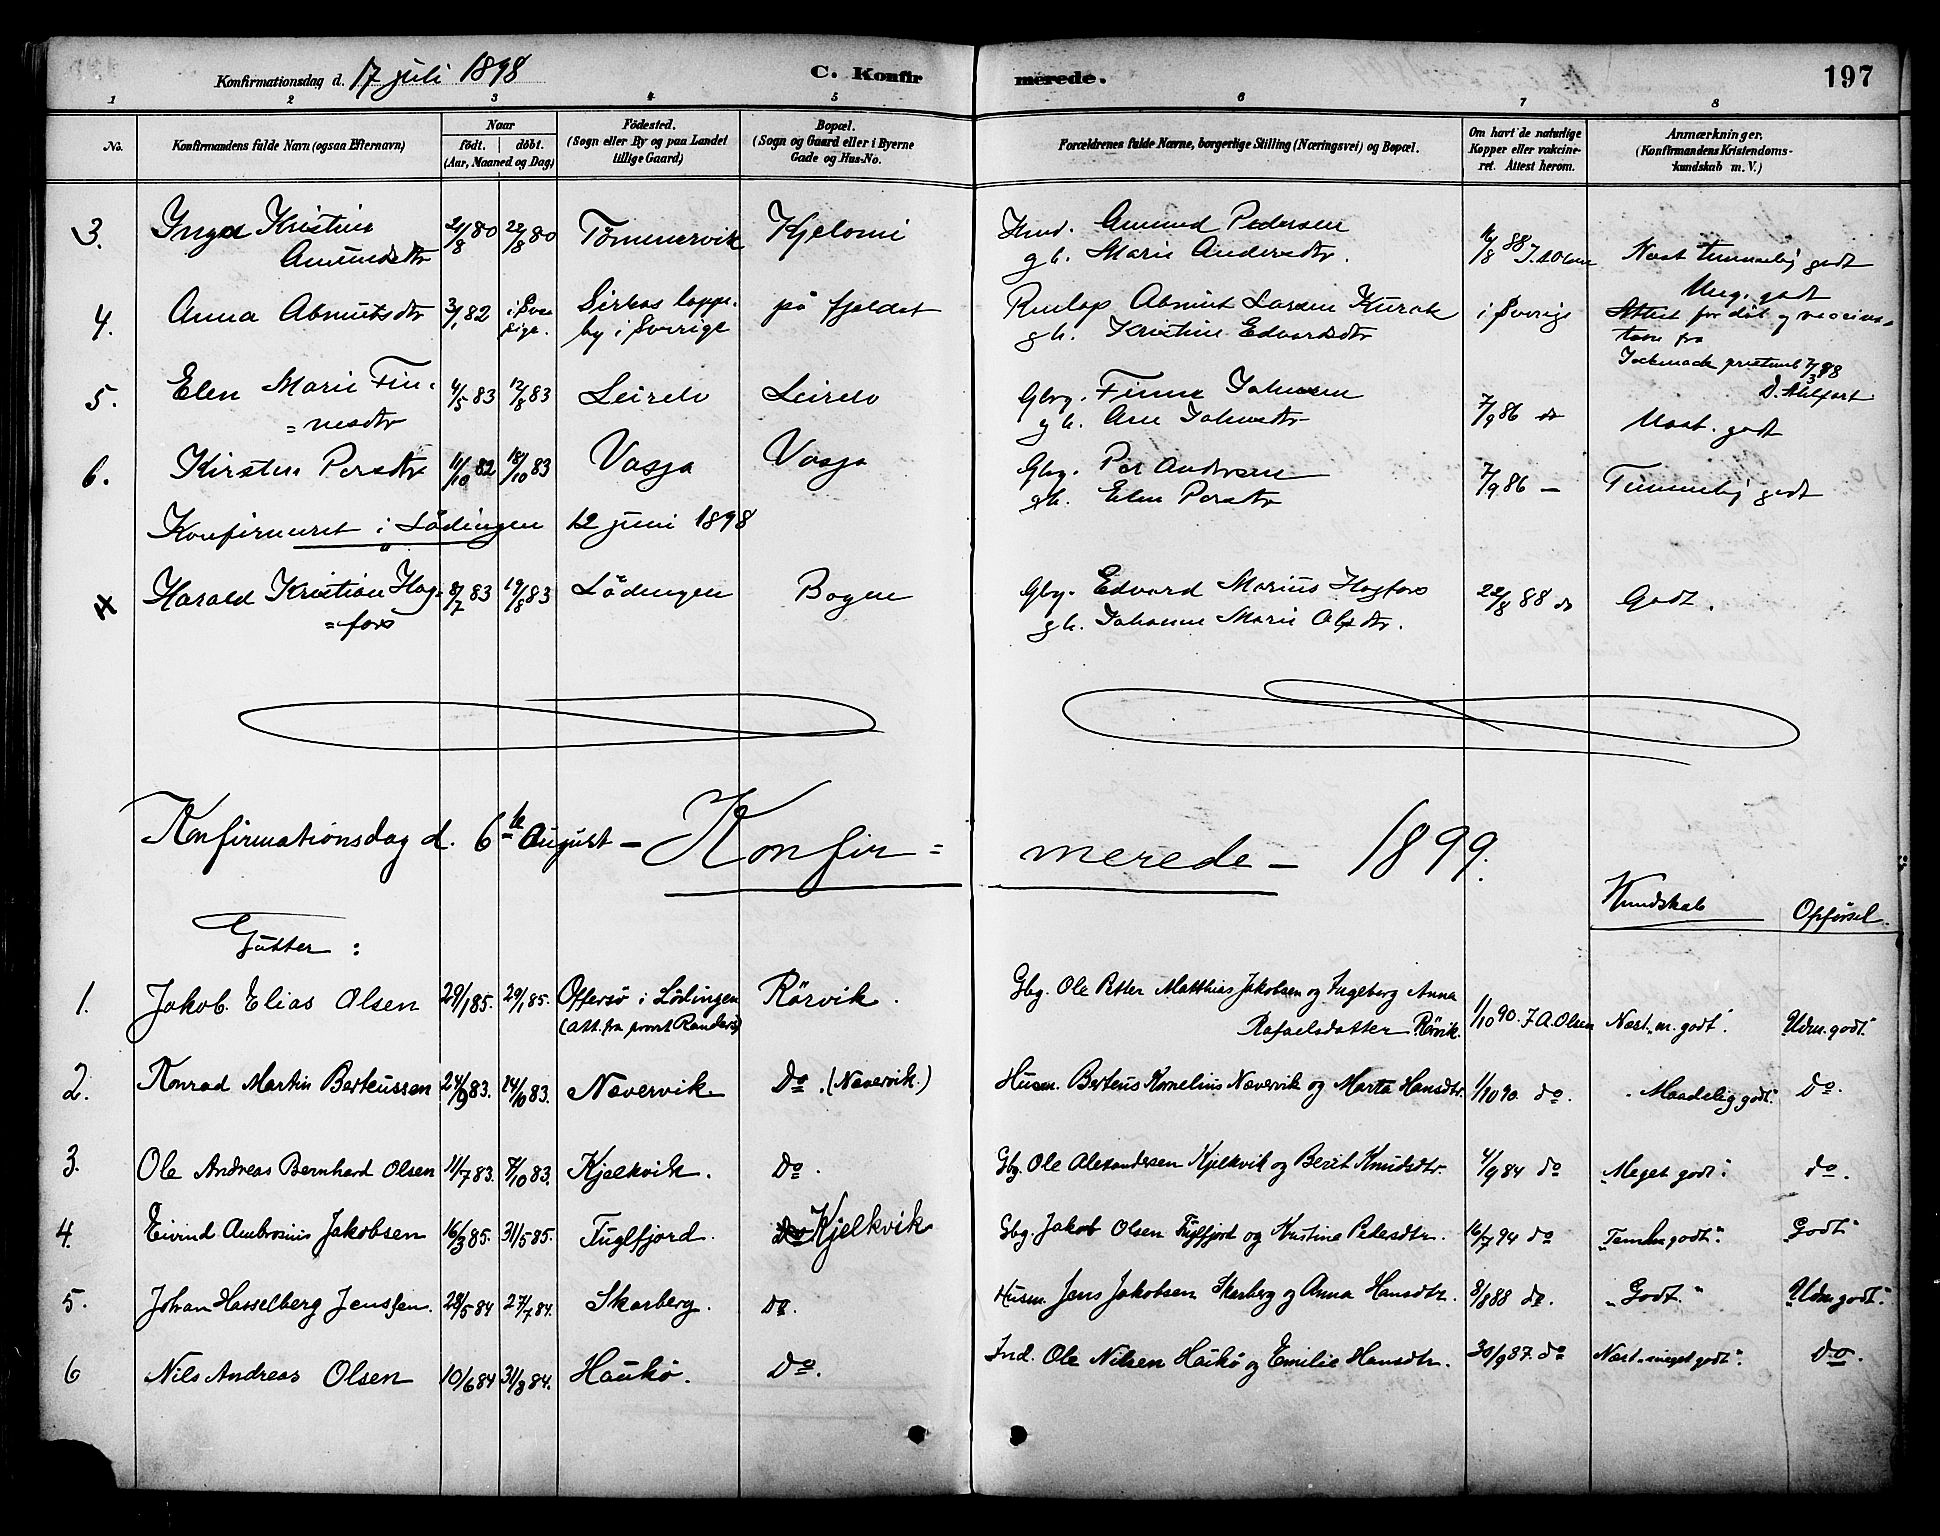 Konfirmationsdag d. 17 juli 1898
C. Konfirmerede.
197
1 2 3 4 5 6 7 8
No.
Konfirmandens fulde Navn (ogsaa Efternavn)
Naar
födt. döbt.
(Aar, Maaned og Dag)
Födested.
(Sogn eller By og paa Landet
tillige Gaard)
Bopæl.
(Sogn og Gaard eller i Byerne
Gade og Hus-No.
Forældrenes fulde Navne, borgerlige Stilling (Næringsvei) og Bopæl.
Om havt de naturlige
Kopper eller vakcine-
ret. Attest herom.
Anmærkninger.
(Konfirmandens Kristendoms-
kundskab m. V.)
3. Inga Kristine 21/8 80 22/8 80 Tömmervik Kjelomi Amund Pedersen
Amundsdtr g. h. Marie Andersdtr. 16/8 88 J. A Olsen Næst temmelig godt
4. Anna Abmutsdtr 3/1 82 i Sve- Sirkas lappe- på fjeldet Abmut Larsen Kurak i Sverige Meg. godt
rige. by i Sverige g. h. Kristine Edvardsdtr Attest for dåb og vaccina-
tion fra
Jockmock 7/3 98
5. Elen Marie Fin- 4/5 83 12/8 83 Leirelv Leirelv Gbg. Finne Johnsen 7/9 86 do
=nesdtr g. h. Ane Johnsdtr godt
6. Kirsten Persdtr 11/10 82 18/10 83 Vasja Vasja Gbg. Per Andersen 7/9 86 — Temmelig godt
gh. Elen Persdtr
Konfirmeret i Lödingen 12 juni 1898
Harald Kristian Hag- 8/7 83 19/8 83 Lödingen Bogen Gbg. Edvard Marius Hagfors 22/8 88 do Godt.
=fors g. h. Johanne Marie Olsdtr.
Konfirmationsdag d. 6te August — Konfir=merede — 1899.
Kundskab Opførsel.
Gutter:
1. Jakob Elias Olsen 29/1 85. 29/1 85. Offersø i Lödingen Rörvik. Gbg. Ole Petter Matthias Jakobsen og Ingeborg Anna
(att. fra provst Randers) Rafaelsdatter Rörvik. 1/10 90. J A. Olsen Næst „m. godt“. „Udm. godt.“
2. Konrad Martin Berteussen 24/9 83. 14/10 83. Nævervik Do. (Nævervik.) Husm. Berteus Kornelius Nævervik og Marta Hansdtr. 1/10 90. do. „Maadelig godt.“ do.
3. Ole Andreas Bernhard Olsen 11/7 83. 7/10 83. Kjelkvik. Do. Gbg. Ole Alexandersen Kjelkvik og Berit Knudsdtr. 4/9 84 do „Meget godt“. do.
4. Eivind Ambrosius Jakobsen 16/3 85. 31/5 85. Fuglfjord. Do Kjelkvik Gbg. Jakob Olsen Fuglfjord og Kristine Pedersdtr. 16/7 94 do „Temm. godt“. „Godt“
5. Johan Hasselberg Jenssen. 28/5 84 27/7 84. Skarberg. do. Husm. Jens Jakobsen Skarberg og Anna Hansdtr. 8/8 88 do. „Godt“ „Udm godt“.
6 Nils Andreas Olsen 10/6 84 31/8 84. Haukø. Do. Ind. Ole Nilsen Haukø og Emilie Hansdtr. 30/9 87. do Næst „meget godt“. do.